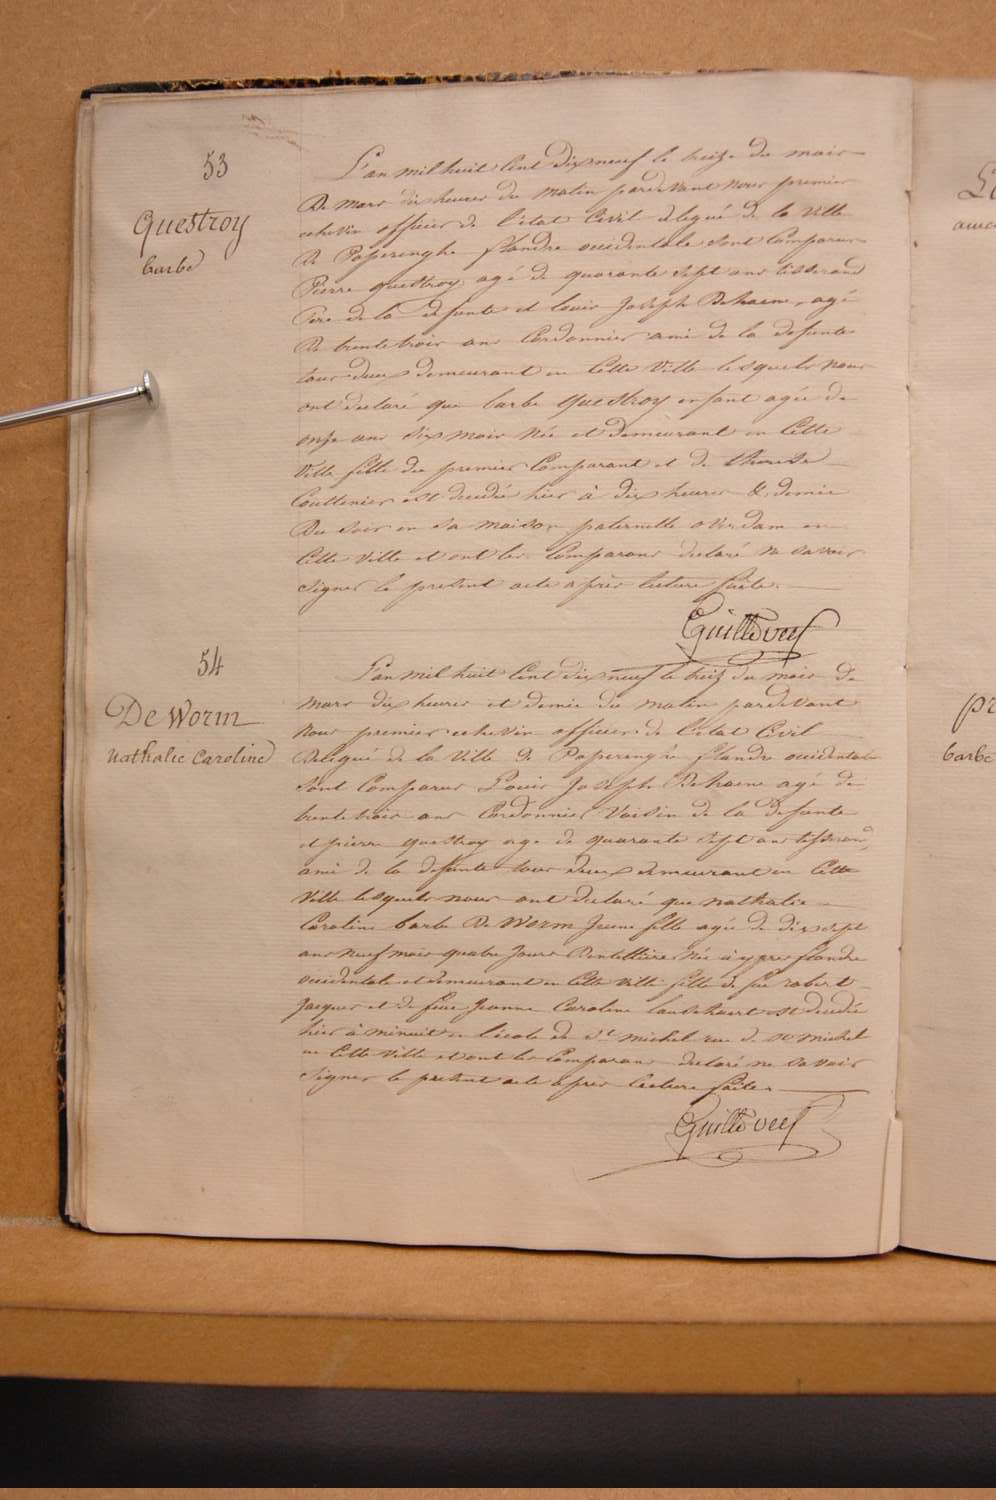 53
Questroy
barbe
L'an mil huit Cent dix neuf le treize du mois
De mars dix heures du matin pardevant nous premier
echevin officier de l'état Civil delegué de la ville
De Poperinghe flandre occidentale sont Comparus
Pierre questroy agé de quarante sept ans tisserand
Pere de la defunte et louis Joseph Dehaene, agé
De trente trois ans Cordonnier ami de la defunte
tous deux demeurant en Cette Ville lesquels nous
ont declaré que barbe questroy enfant agée de
onze ans six mois Née et demeurant en Cette
Ville fille du premier Comparant et de therese
Couttenier est decedée hier à dix heures & demie
Du soir en sa maison paternelle overdam en
Cette Ville et ont les Comparans declaré ne savoir
signer le present acte après lecture faite.
54
De Worm
Nathalie Caroline
L'an mil huit Cent dix neuf le treize du mois de
mars dix heures et demie du matin pardevant
Nous premier echevin officier de l'état Civil
Delegué de la Ville de Poperinghe flandre occidentale
sont Comparus Louis Joseph Dehaene agé de
trente trois ans Cordonnier Voisin de la defunte
et pierre questroy age de quarante sept ans tisserand,
ami de la defunte tous deux demeurant en Cette
Ville lesquels nous ont declaré que nathalie
Caroline barbe De Worm Jeune fille agée de dix sept
ans neuf mois quatre Jours Dentelliere Née à ypres flandre
occidentale et demeurant en Cette Ville fille de feu robert
Jacques et de feue Jeanne Caroline est decedée
hier à minuit en l'ecole de St michel rue de st michel
en Cette Ville et ont les Comparans declaré ne savoir
signer le present acte après lecture faite.
barbe